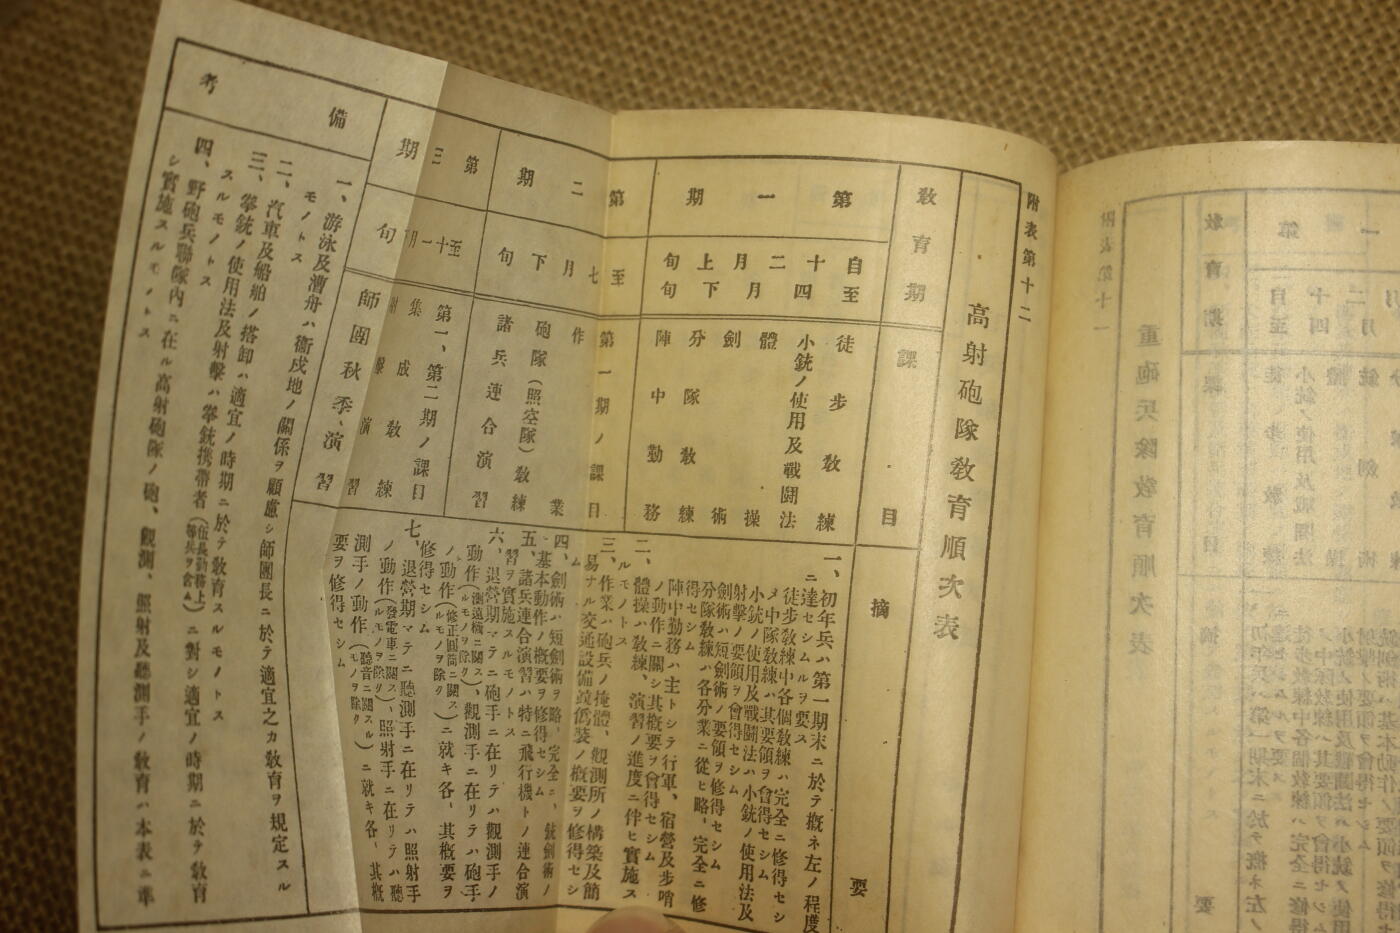 附表第十二
高射砲隊敎育順次表
敎育期
課目
摘要
第一期
自十二月上旬
至四月下旬
徒步敎練
小銃ノ使用及戰鬪法
體操
劍術
分隊敎練
陣中勤務
一、初年兵ハ第一期末ニ於テ槪ネ左ノ程度
ニ達セシムルヲ要ス
徒步敎練中各個敎練ハ完全ニ修得セシ
メ中隊敎練ハ其要領ヲ會得セシム
小銃ノ使用及戰鬪法ハ小銃ノ使用法及
射擊ノ要領ヲ會得セシム
劍術ハ短劍術ノ要領ヲ修得セシム
分隊敎練ハ各分業ニ從ヒ略、完全ニ修
得セシム
陣中勤務ハ主トシテ行軍、宿營及步哨
ノ動作ニ關シ其槪要ヲ會得セシム
二、體操ハ敎練、演習ノ進度ニ伴ヒ實施ス
ルモノトス
三、作業ハ砲兵ノ掩體、觀測所ノ構築及簡
易ナル交通設備竝僞裝ノ槪要ヲ修得セシ
ム
四、劍術ハ短劍術ヲ略、完全ニ、銃劍術ノ
基本動作ノ槪要ヲ修得セシム
五、諸兵連合演習ハ特ニ飛行機トノ連合演
習ヲ實施スルモノトス
六、退營期マテニ砲手ニ在リテハ觀測手ノ
動作(測遠機ニ關スルモノヲ除ク)、觀測手ニ在リテハ砲手
ノ動作(修正圓筒ニ關スルモノヲ除ク)ニ就キ各、其槪要ヲ
修得セシム
七、退營期マテニ聽測手ニ在リテハ照射手
ノ動作(發電車ニ關スルモノヲ除ク)、照射手ニ在リテハ聽
測手ノ動作(聽音ニ關スルモノヲ除ク)ニ就キ各、其槪
要ヲ修得セシム
第二期
至七月下旬
第一期ノ課目
作業
砲隊(照空隊)敎練
諸兵連合演習
第三期
至十一月 旬
第一、第二期ノ課目
集成敎練
射擊演習
師團秋季演習
備考
一、游泳及漕舟ハ衞戍地ノ關係ヲ顧慮シ師團長ニ於テ適宜之カ敎育ヲ規定スル
モノトス
二、汽車及船舶ノ搭卸ハ適宜ノ時期ニ於テ敎育スルモノトス
三、拳銃ノ使用法及射擊ハ拳銃携帶者(伍長勤務上等兵ヲ含ム)ニ對シ適宜ノ時期ニ於テ敎育
スルモノトス
四、野砲兵聯隊內ニ在ル高射砲隊ノ砲、觀測、照射及聽測手ノ敎育ハ本表ニ準
シ實施スルモノトス
附表第十一
重砲兵隊敎育順次表
敎育期
課
摘要